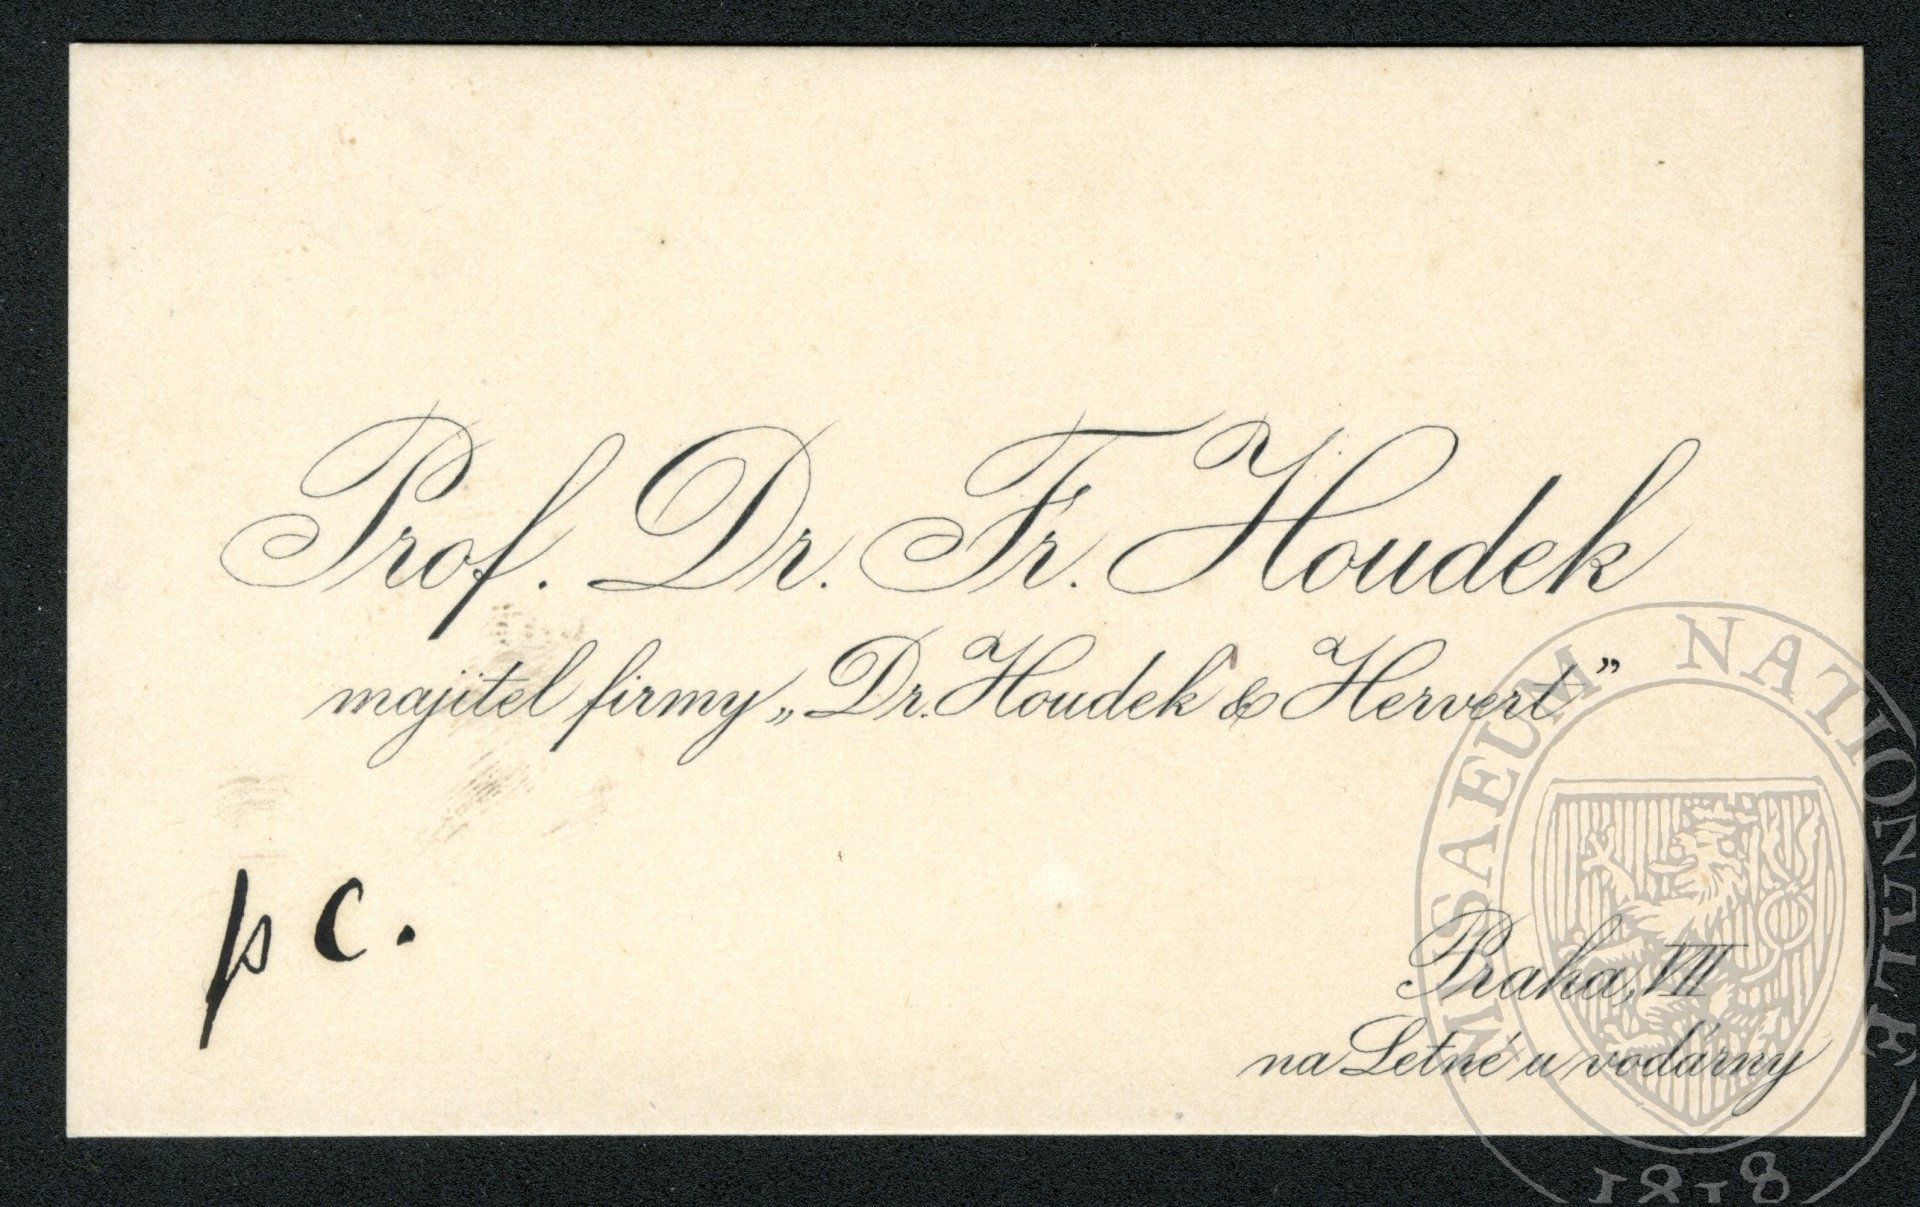 Prof. Dr. Fr. Houdek
majitel firmy „Dr. Houdek & Hervert”
p c.
Praha, VII
na Letné u vodárny
MUSAEUM NATIONALE
1818